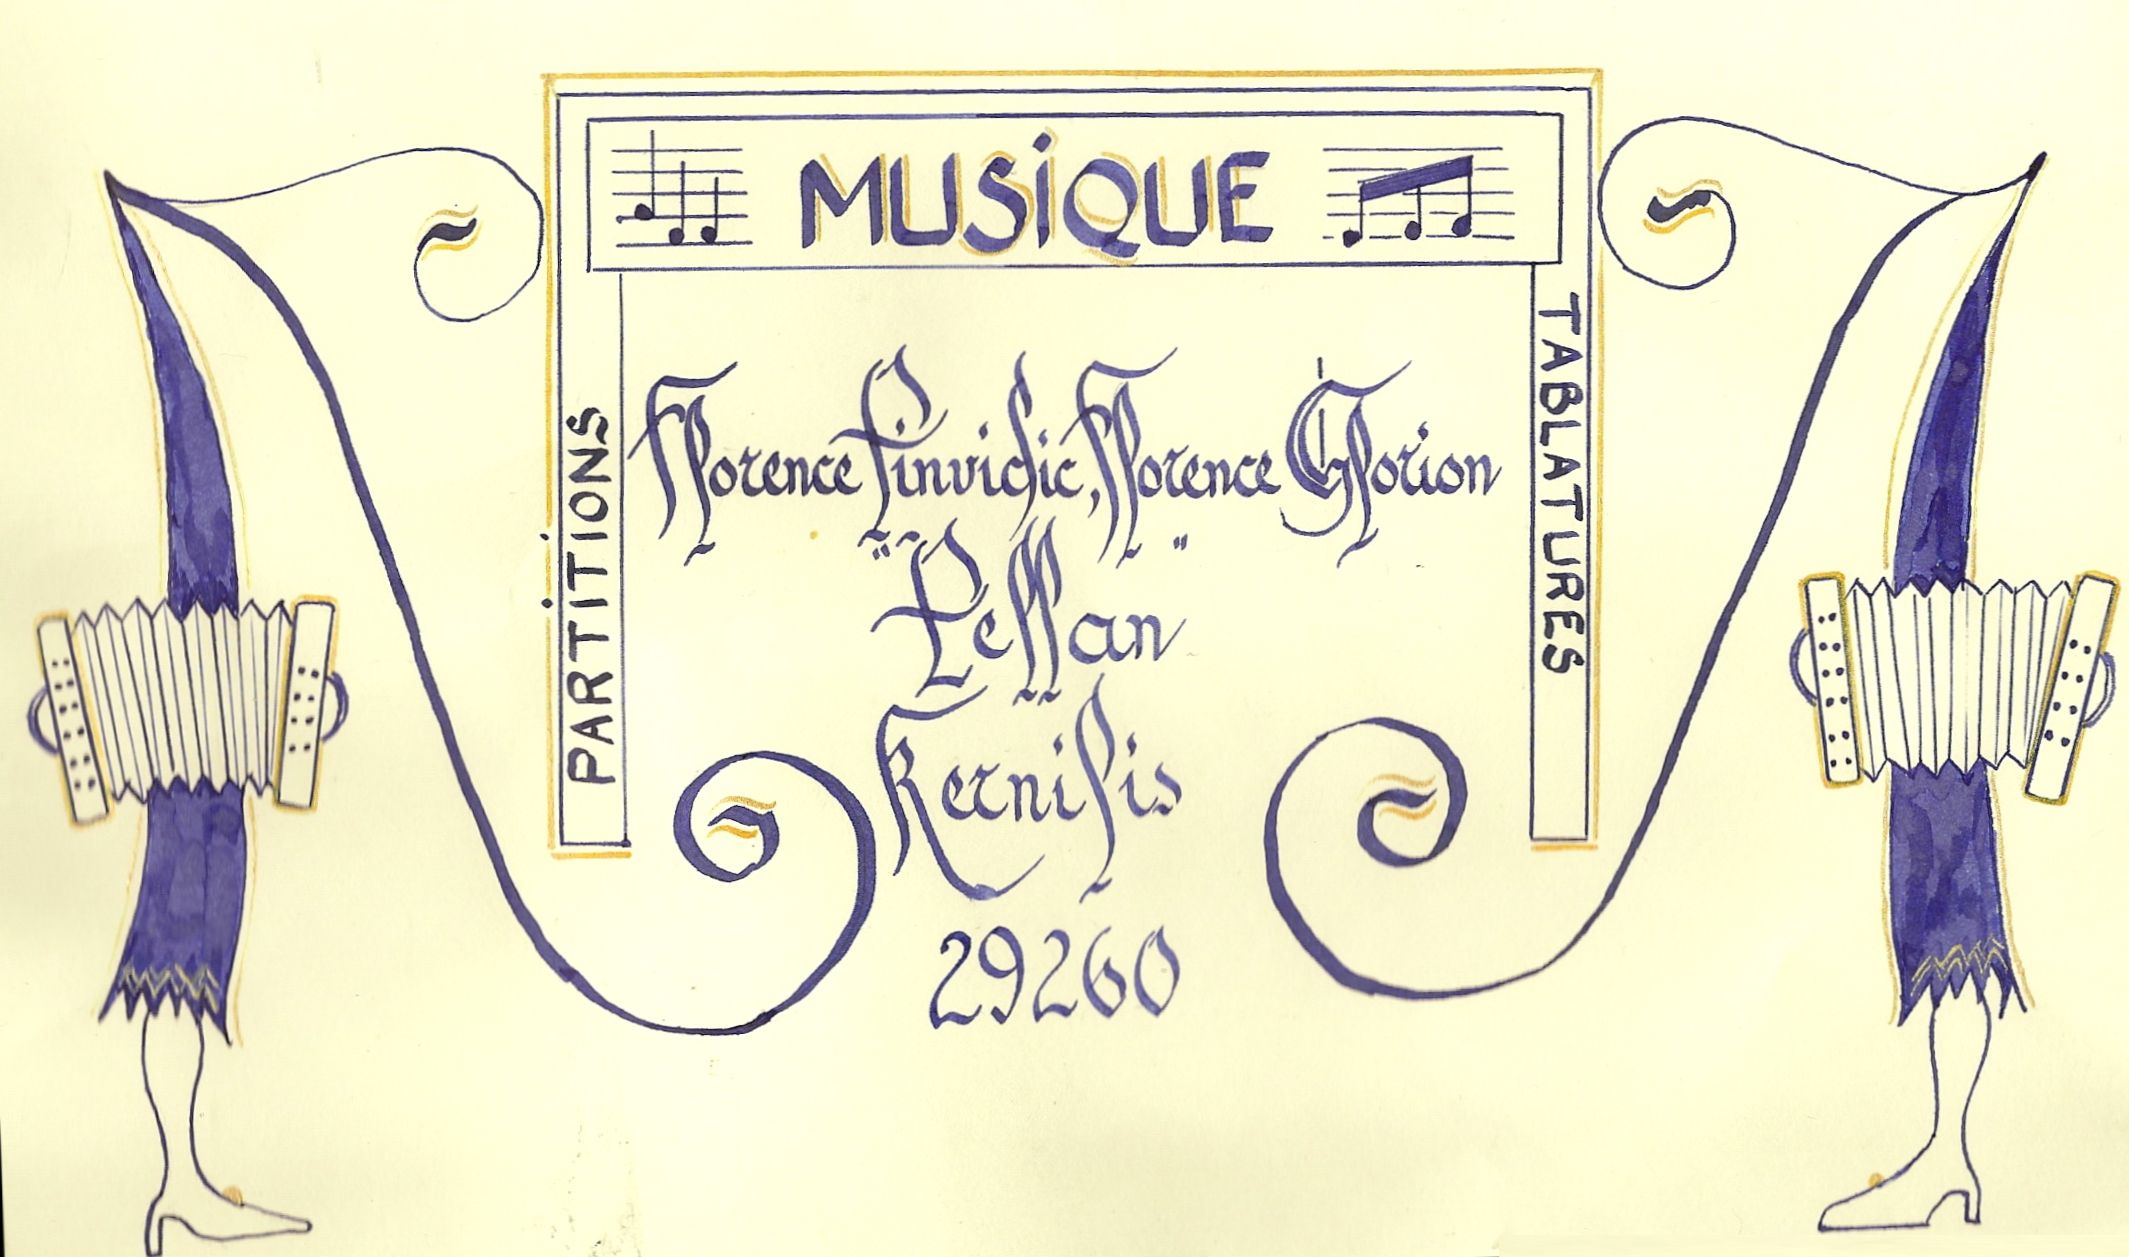 MUSIQUE
PARTITIONS
TABLATURES
Florence Pinvidic, Florence Glorion
"Pellan"
Kernilis
29260